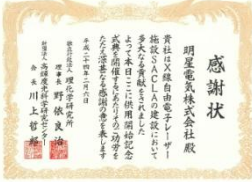 感謝状
明星電気株式会社殿
貴社はX線自由電子レーザー
施設SACLAの建設において
多大なる貢献をされました
よって本日ここに供用開始記念
式典を開催するにあたりそのご功労を
たたえ深甚なる感謝の意を表します
平成二十四年二月六日
独立行政法人 理化学研究所
理事長 野依良治
財団法人 高輝度光科学研究センター
会長 川上哲郎